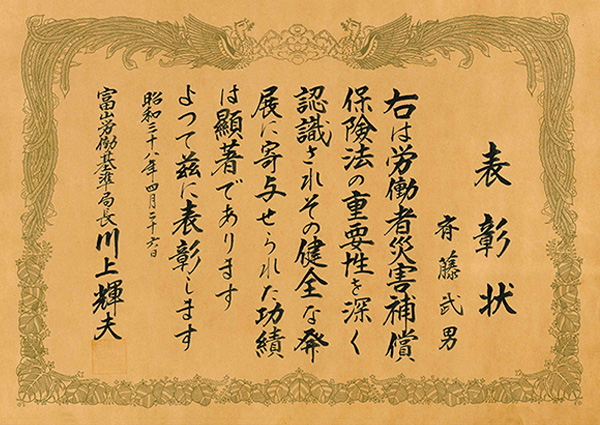 表彰状
斉藤武男
右は労働者災害補償
保険法の重要性を深く
認識されその健全な発
展に寄与せられた功績
は顯著であります
よつて茲に表彰します
昭和三十八年四月二十六日
富山労働基準局長 川上輝夫